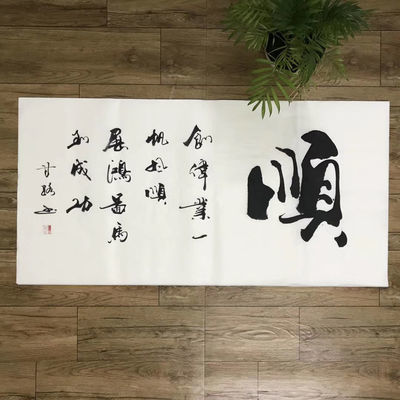 順
創偉業一
帆風順
展鴻圖馬
到成功